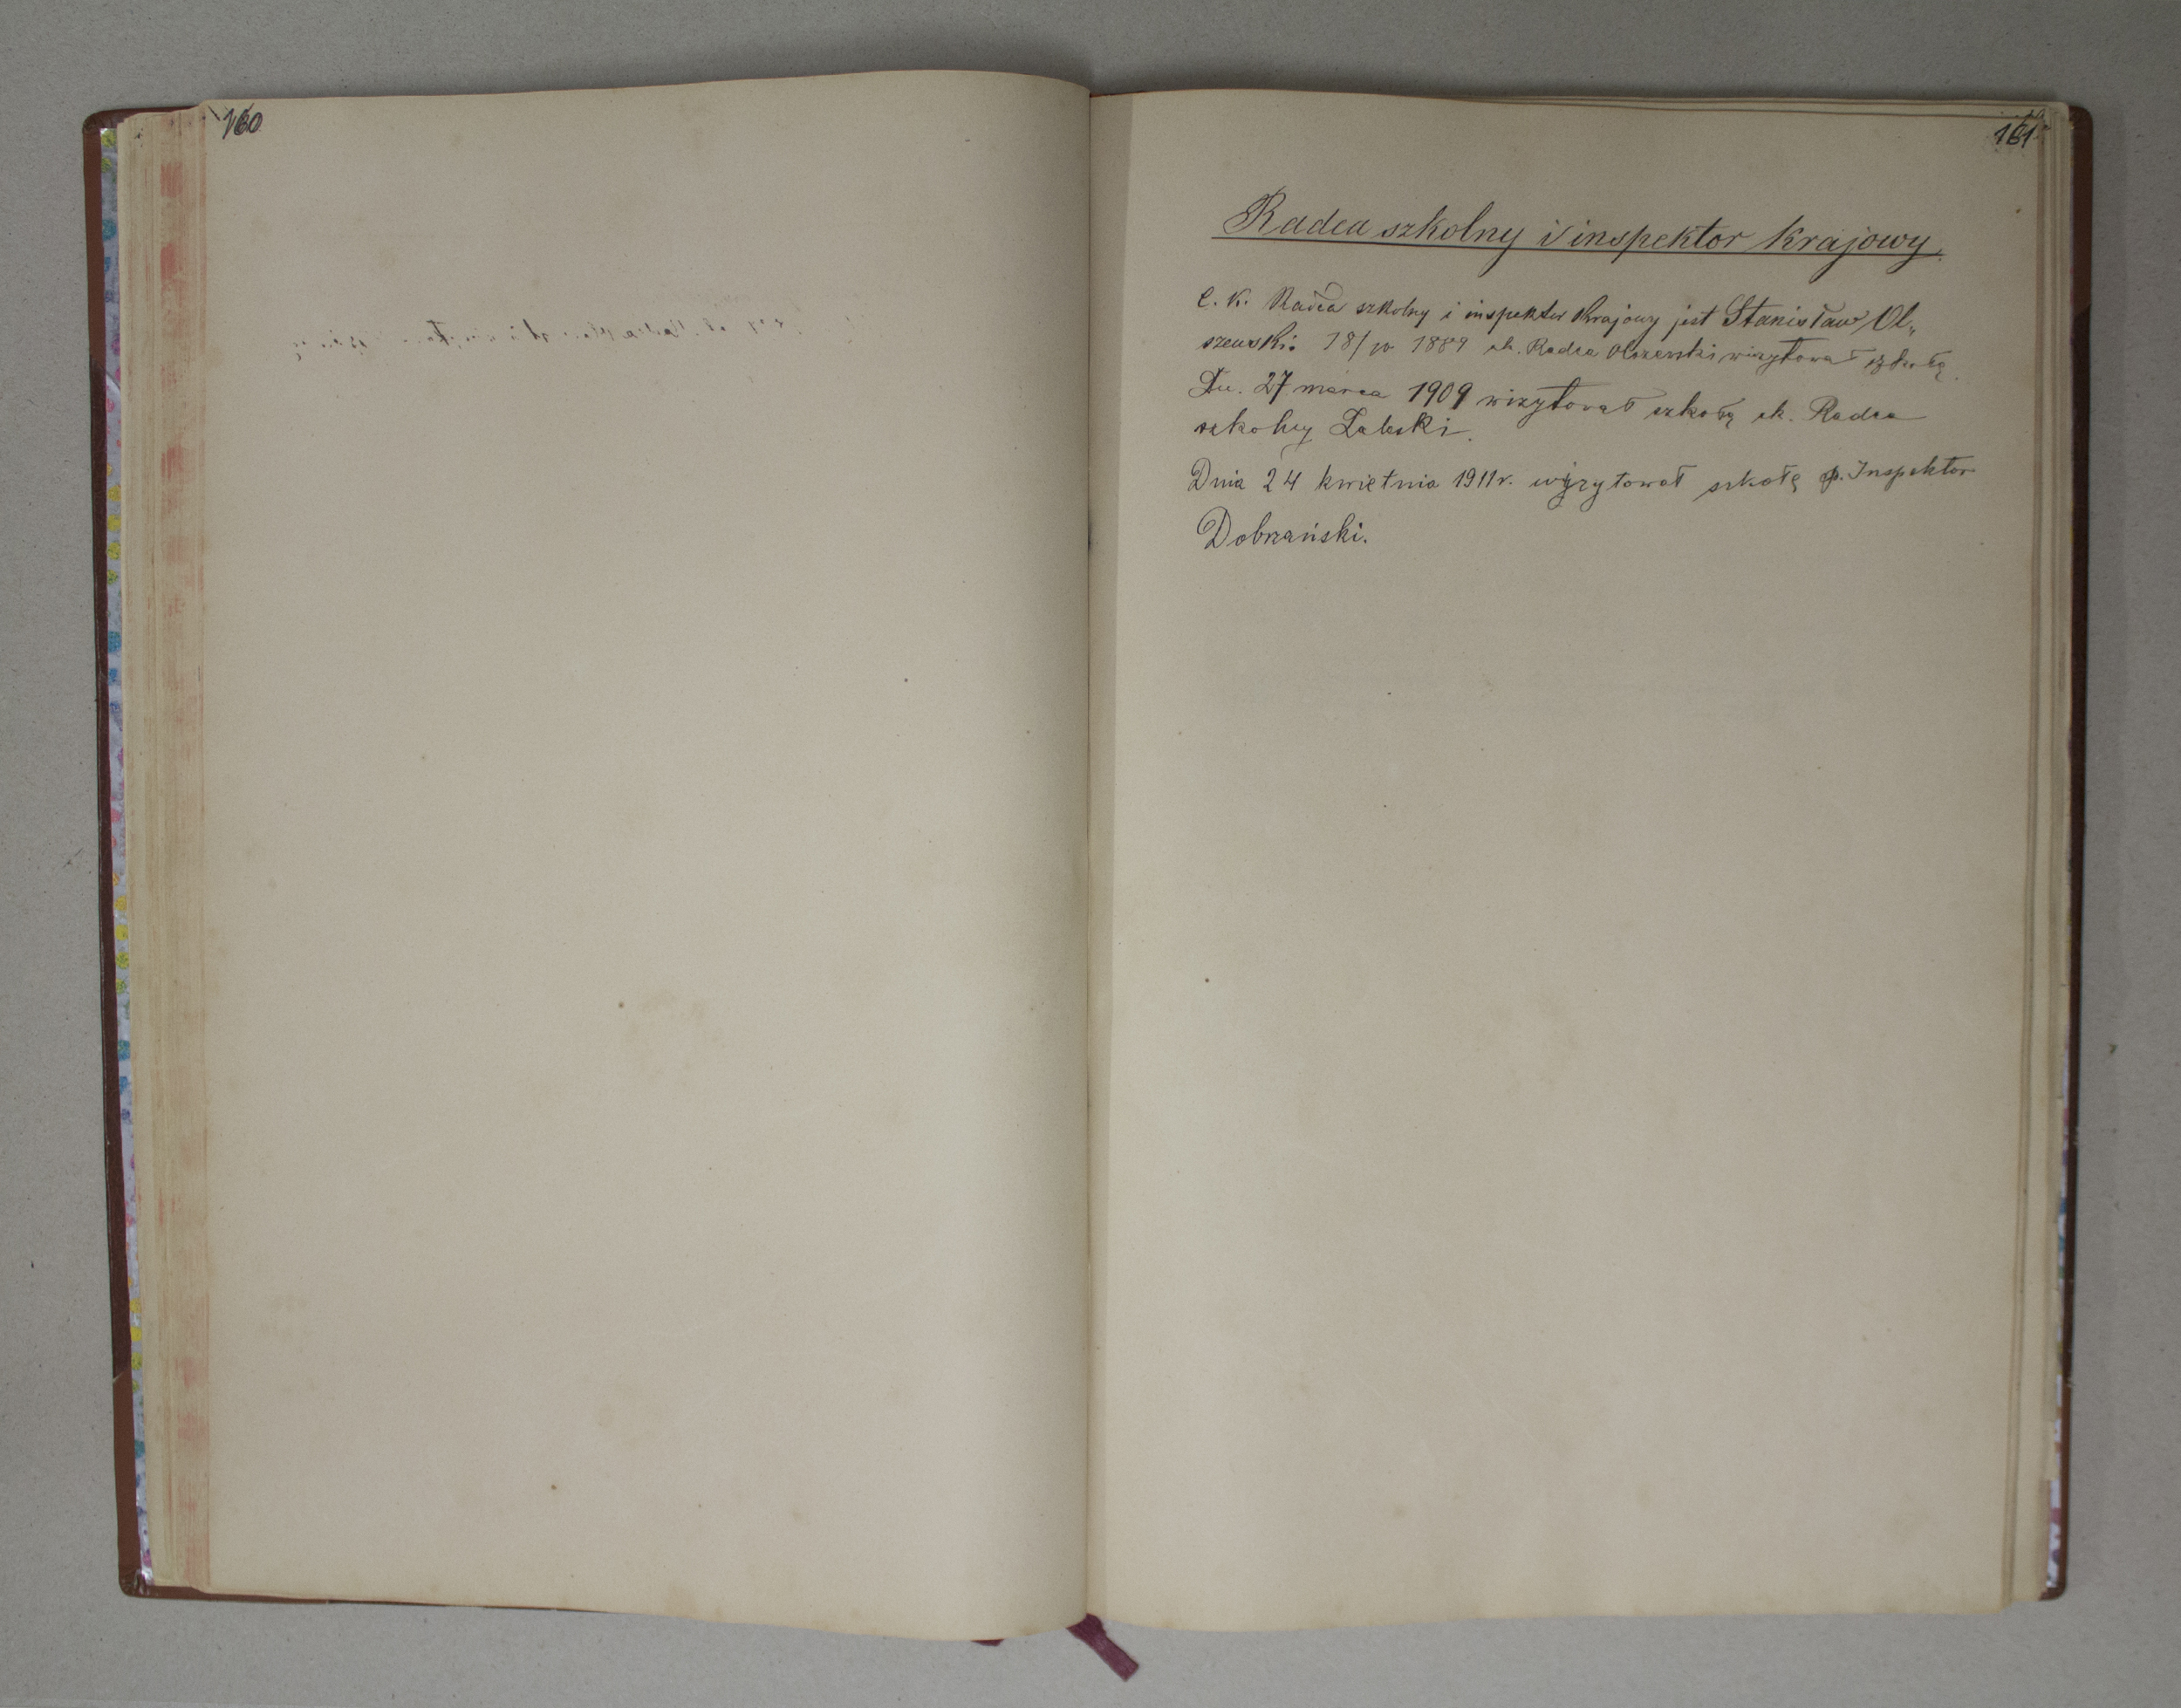 160
161
Radca szkolny i inspektor krajowy.
C. K. Radca szkolny i inspektor krajowy jest Stanisław Ol„
szewski. 18/10 1889 ck. Radca Olszewski wizytował szkołę.
Dn. 27 marca 1909 wizytował szkołę ck. Radca
szkolny Zaleski.
Dnia 24 kwietnia 1911 r. wizytował szkołę p. Inspektor
Dobrzański.